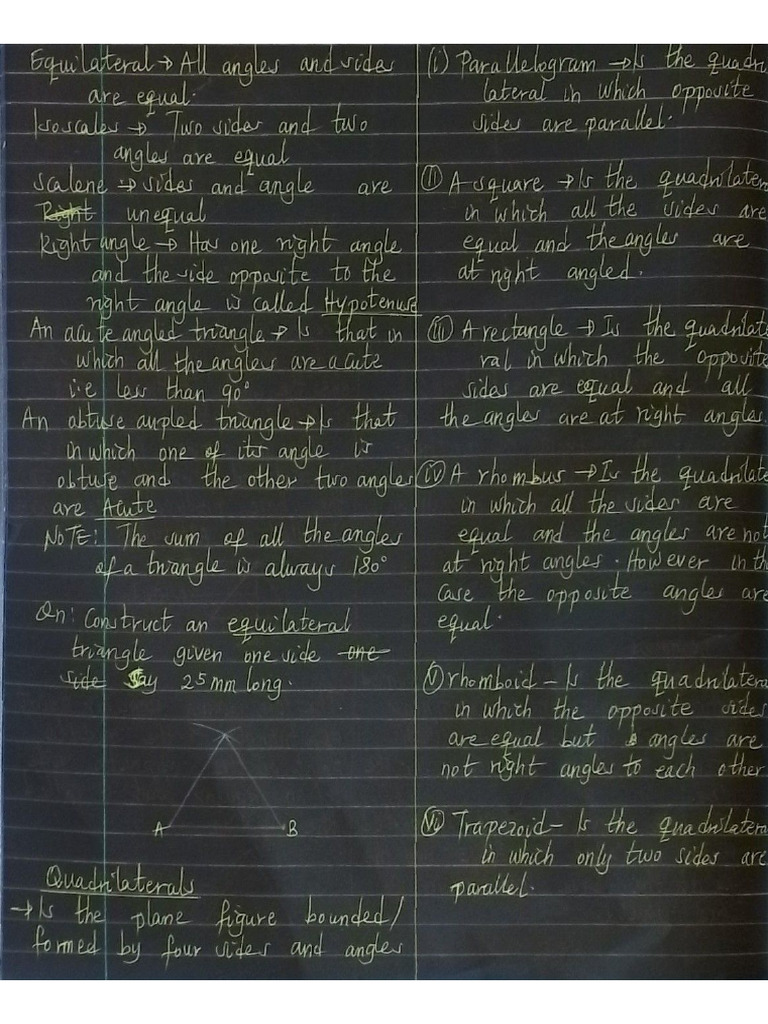 Equilateral → All angles and sides
are equal.
Isoscales → Two sides and two
angles are equal
Scalene → sides and angle are
Right unequal
Right angle → Has one right angle
and the side opposite to the
right angle is called Hypotenuse
An acute angled triangle → Is that in
which all the angles are acute
i.e less than 90°
An obtuse aupled triangle → Is that
in which one of its angle is
obtuse and the other two angles
are Acute
NOTE: The sum of all the angles
of a triangle is always 180°
Qn: Construct an equilateral
triangle given one side one
side Say 25mm long.
A B
Quadrilaterals
→ Is the plane figure bounded/
formed by four sides and angles
(i) Parallelogram → Is the quadri
lateral in which opposite
sides are parallel.
(ii) A square → Is the quadrilatera
in which all the sides are
equal and the angles are
at right angled.
(iii) A rectangle → Is the quadrilate
ral in which the opposite
sides are equal and all
the angles are at right angles.
(iv) A rhombus → Is the quadrilate
in which all the sides are
equal and the angles are not
at right angles. However in th
case the opposite angles are
equal.
(v) rhomboid - Is the quadrilatera
in which the opposite sides
are equal but angles are
not right angles to each other
(vi) Trapezoid - Is the quadrilatera
in which only two sides are
parallel.